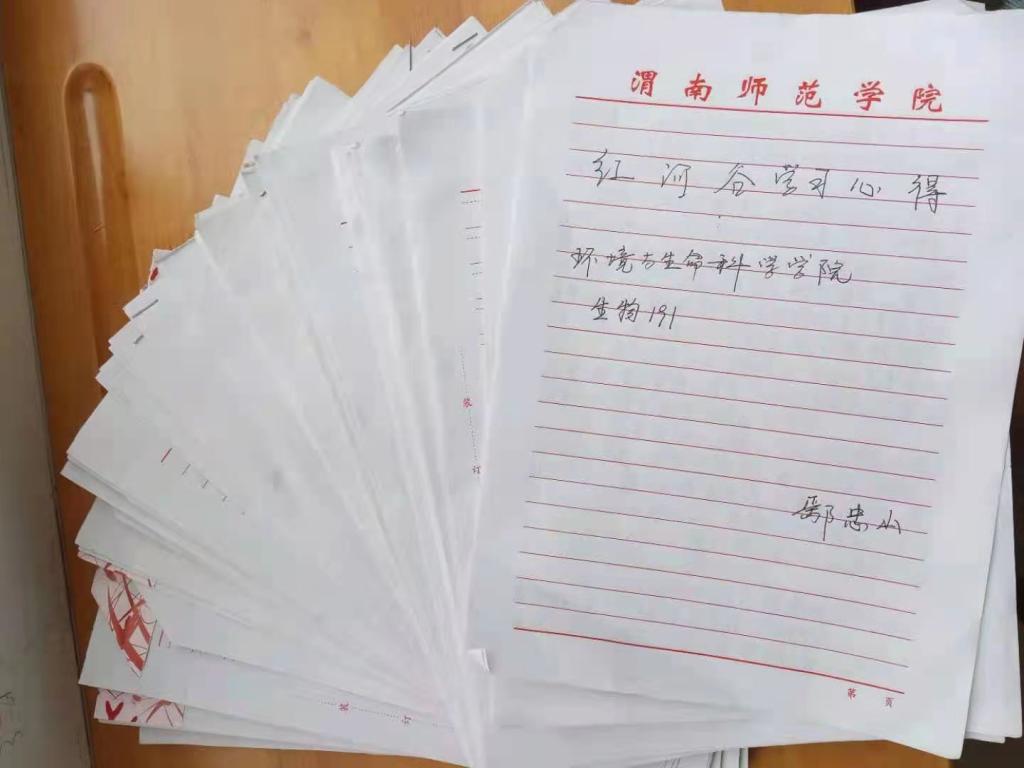 渭南师范学院
红河谷学习心得
环境与生命科学学院
生物191
鄢忠山
第 页
装
订
装 订